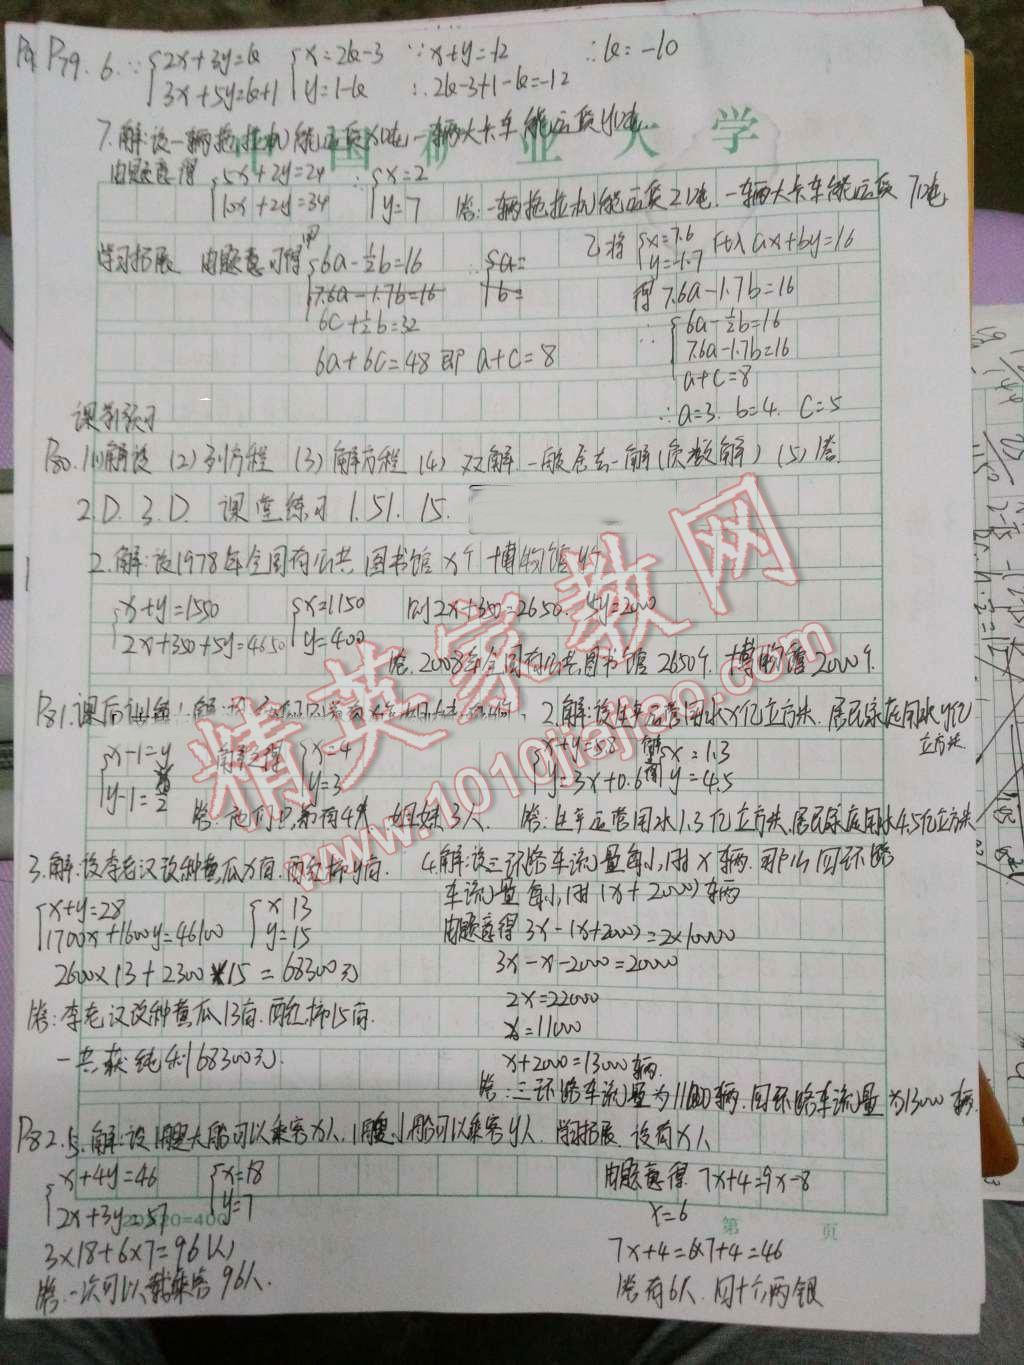 P79. 6. ∵ {2x+3y=k 3x+5y=k+1 {x=2k-3 y=1-k ∵x+y=-12 ∴2k-3+1-k=-12 ∴k=-10
中国矿业大学
7. 解:设一辆拖拉机能运货x吨,一辆大卡车能运货y吨.
由题意得 {5x+2y=24 10x+2y=34 ∴{x=2 y=7 答:一辆拖拉机能运货2吨.一辆大卡车能运货7吨
学习拓展 由题意可得 甲
{6a-½b=16
7.6a-1.7b=16
∴{a=
b=
6c+½b=32
6a+6c=48 即 a+c=8
乙将 {x=7.6 y=-1.7 代入ax+by=16
得 7.6a-1.7b=16
∴{6a-½b=16
7.6a-1.7b=16
a+c=8
∴a=3. b=4. c=5
课前预习
P80. 1.(1)解设 (2)列方程 (3)解方程 (4) 双解 一般舍去一解(负数解) (5)答
2.D. 3.D. 课堂练习 1.51. 15.
2.解:设1978年全国有公共图书馆x个 博物馆y个
{x+y=1550 2x+350+5y=4650 {x=1150 y=400 则2x+350=2650. 5y=2000
答.2008年全国有公共图书馆2650个.博物馆2000个.
P81.课后训练1.解:设
{x-1=y
y-1=x/2
解之得 {x=4
y=3
答:他们兄弟有4人 姐妹3人.
2.解:设生产运营用水x亿立方米.居民家庭用水y亿
立方米
{x+y=5.8
y=3x+0.6
解得 {x=1.3
y=4.5
答:生产运营用水1.3亿立方米,居民家庭用水4.5亿立方米
3.解:设李老汉改种黄瓜x亩.西红柿y亩.
{x+y=28
1700x+1600y=46100
{x 13
y=15
2600×13+2300×15=68300元
答:李老汉改种黄瓜13亩.西红柿15亩.
一共获纯利68300元.
4.解:设三环路车流量每小时x辆.那么四环路
车流量每小时(x+2000)辆
由题意得 3x-(x+2000)=2×10000
3x-x-2000=20000
2x=22000
x=11000
x+2000=13000辆
答:三环路车流量为11000辆.四环路车流量为13000辆.
P82. 5.解:设1艘大船可以乘客x人,1艘小船可以乘客y人.
{x+4y=46
2x+3y=57
{x=18
y=7
20×20=400
3×18+6×7=96(人)
答.一次可以载乘客96人.
学习拓展. 设有x人
由题意得 7x+4=9x-8
x=6
第 页
7x+4=6×7+4=46
答有6人.四十六两银
精英家教网
www.1010jiajiao.com